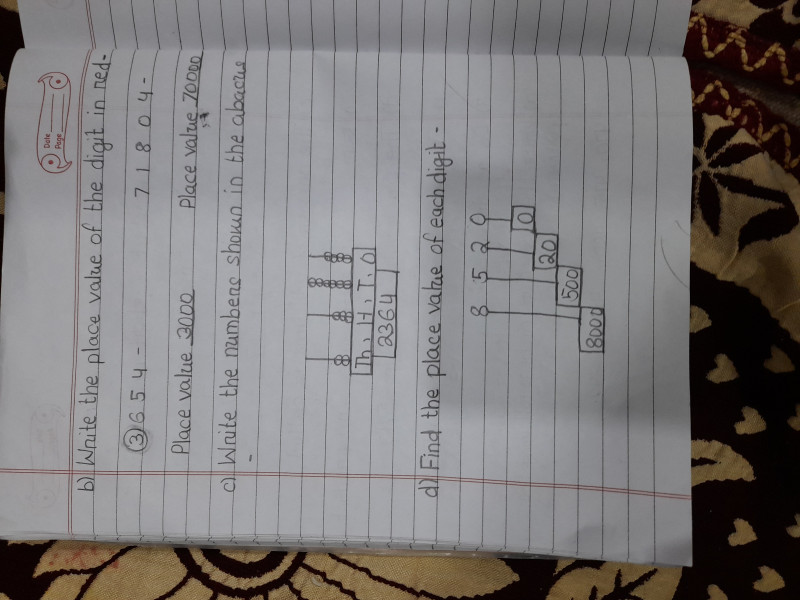 Date
Page
b) Write the place value of the digit in red-
3 6 5 4 - 7 1 8 0 4 -
Place value 3000 Place value 70000
c) Write the numbers shown in the abacus
-
Th, H, T, O
2364
d) Find the place value of each digit -
8 5 2 0
0
20
500
8000